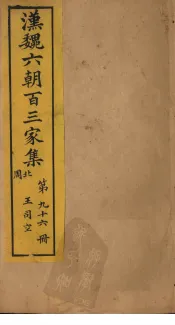 漢魏六朝百三家集
北周
王司空
第九十六冊